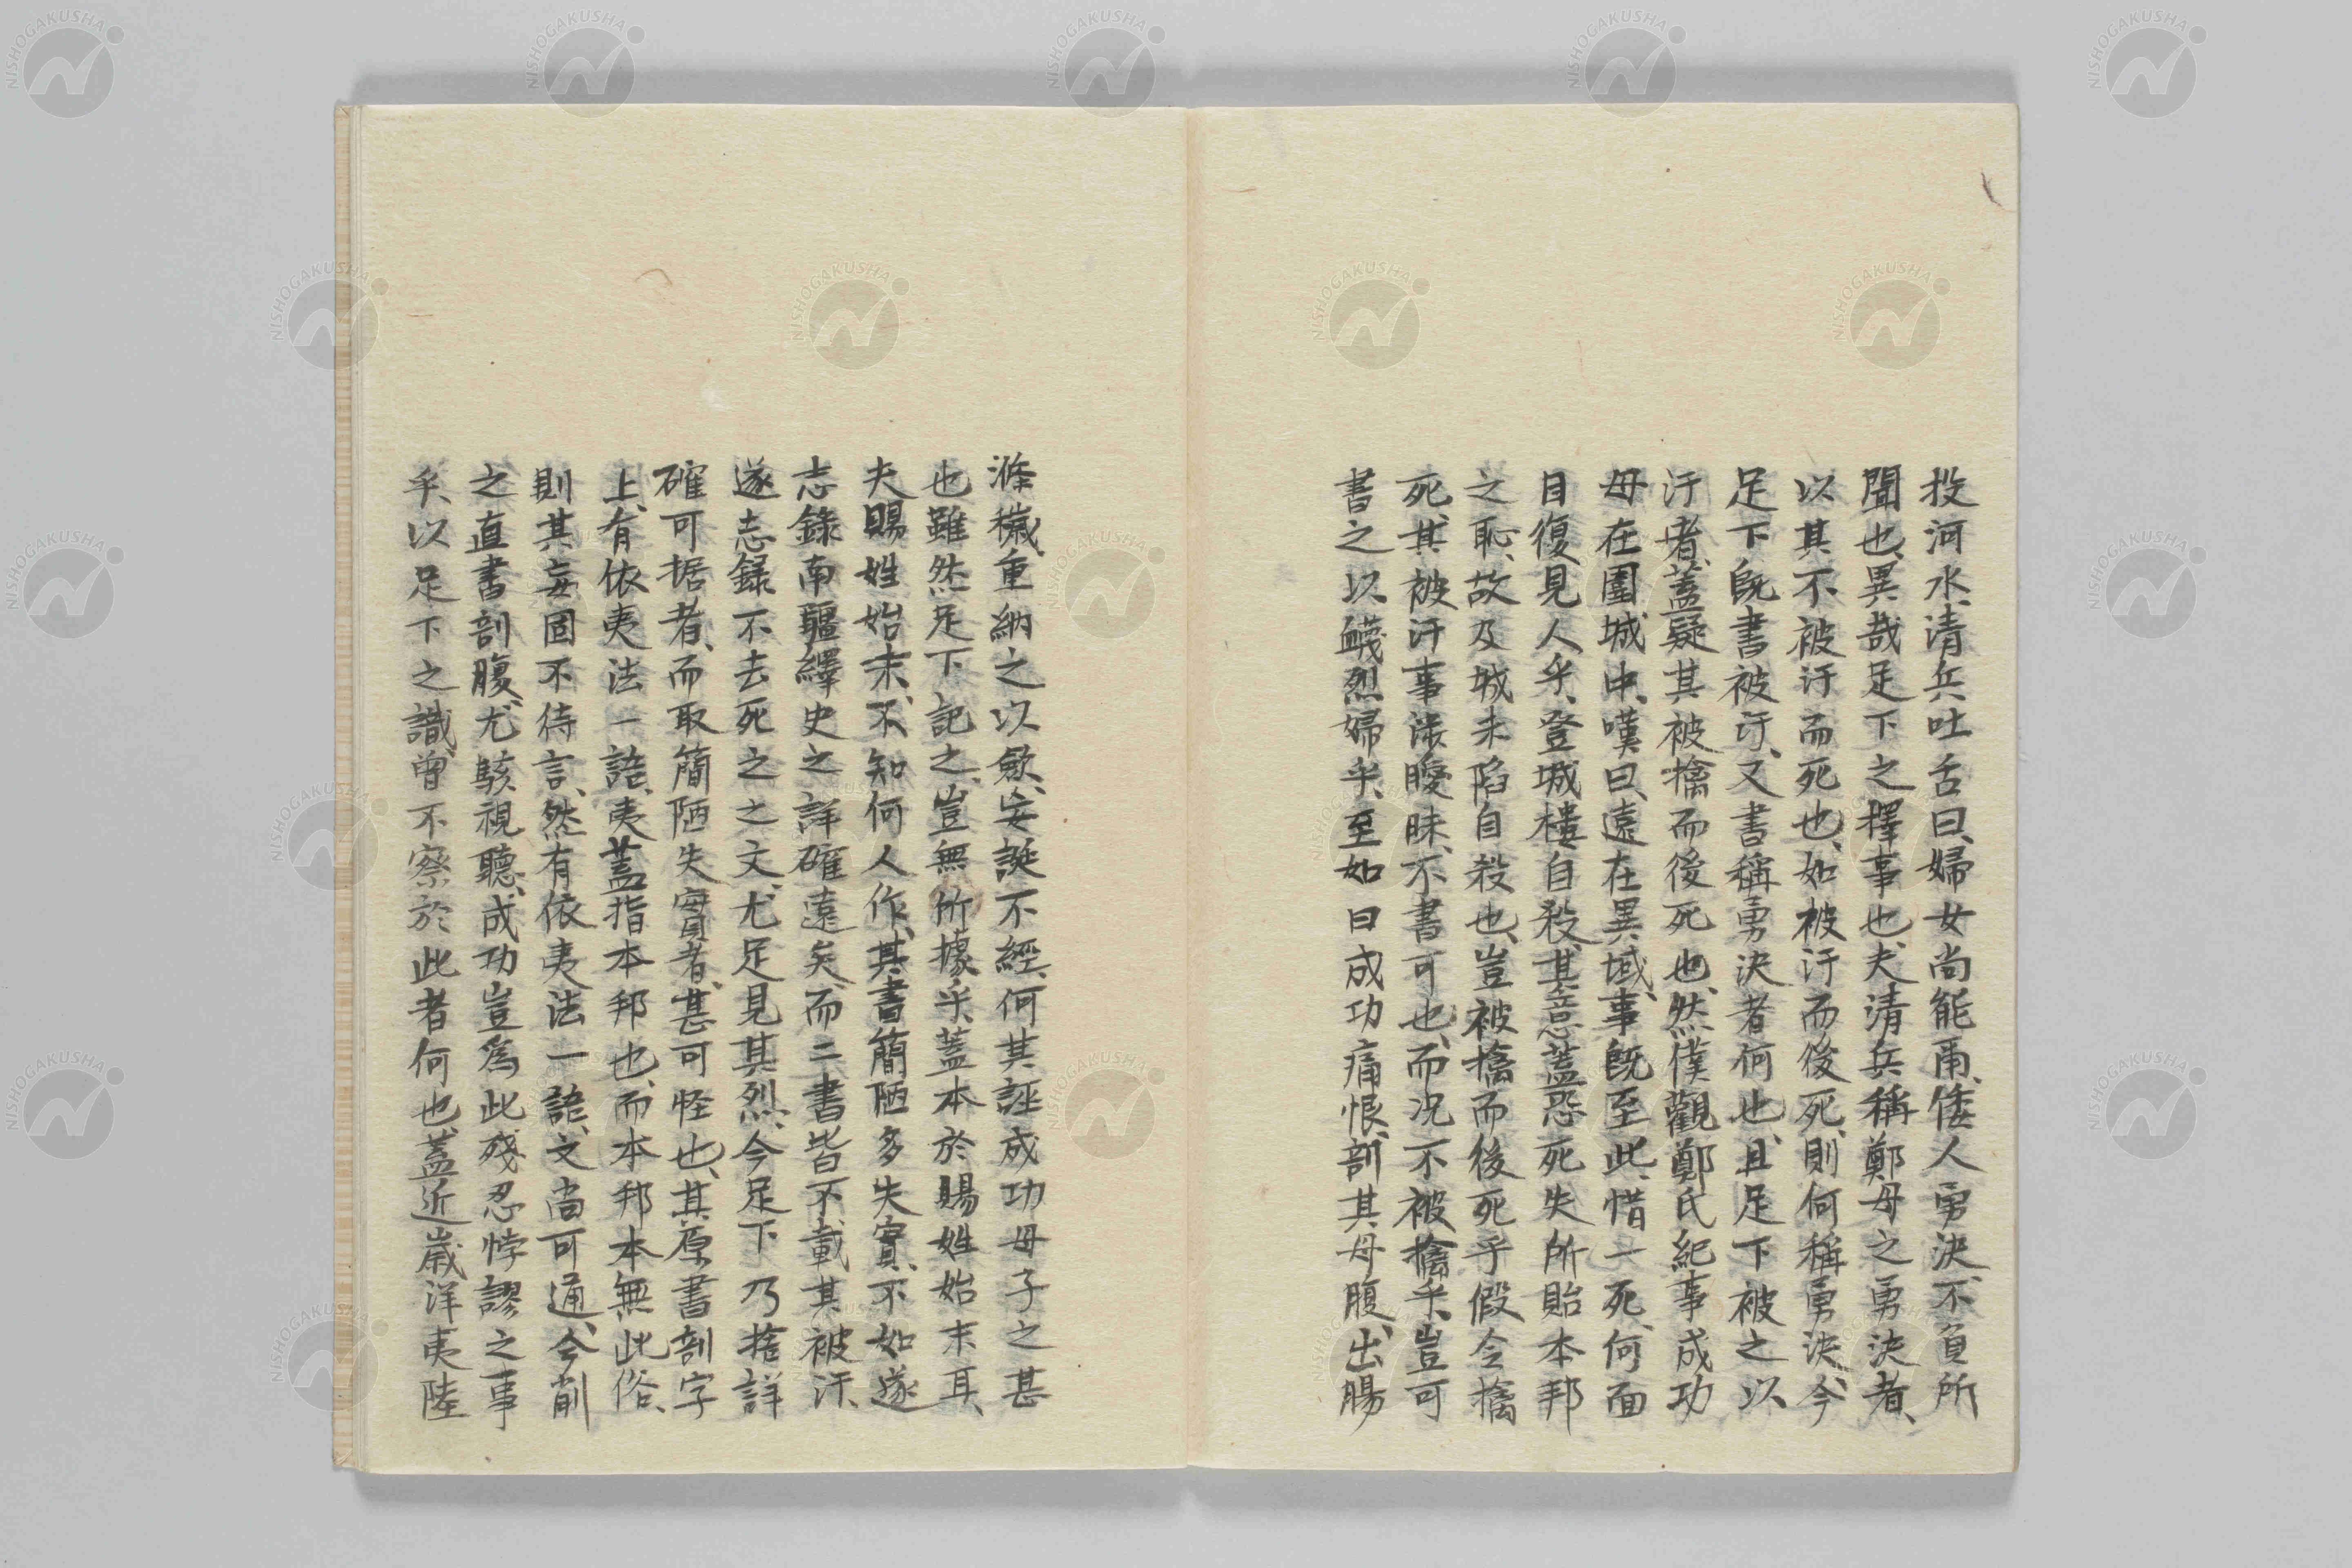 投河水、清兵吐舌曰、婦女尚能爾、倭人勇決、不負所
聞也、異哉足下之釋事也、夫清兵稱鄭母之勇決者、
以其不被汙而死也、如被汙而後死、則何稱勇決、今
足下既書被汙、又書稱勇決者何也、且足下被之以
汙者、蓋疑其被擒而後死也、然僕觀鄭氏紀事、成功
母在圍城中、嘆曰、遠在異域、事既至此、惜一死、何面
目復見人乎、登城樓自殺、其意蓋恐死失所貽本邦
之恥、故及城未陷自殺也、豈被擒而後死乎、假令擒
死、其被汙事渉曖昧、不書可也、而况不被擒乎、豈可
書之以衊烈婦乎、至如曰成功痛恨、剖其母腹、出腸
滌穢、重納之以斂、妄誕不經、何其誣成功母子之甚
也、雖然足下記之、豈無所據乎、蓋本於賜姓始末耳、
夫賜姓始末、不知何人作、其書簡陋多失實、不如遂
志錄南疆繹史之詳確遠矣、而二書皆不載其被汙、
遂志錄不去死之之文、尤足見其烈、今足下乃捨詳
確可据者、而取簡陋失實者、甚可怪也、其原書剖字
上、有依夷法一語、夷蓋指本邦也、而本邦本無此俗、
則其妄固不待言、然有依夷法一語、文尚可通、今削
之直書剖腹、尤駭視聽、成功豈爲此殘忍悖謬之事
乎、以足下之識、曾不察於此者何也、蓋近歲洋夷陸
NISHOGAKUSHA